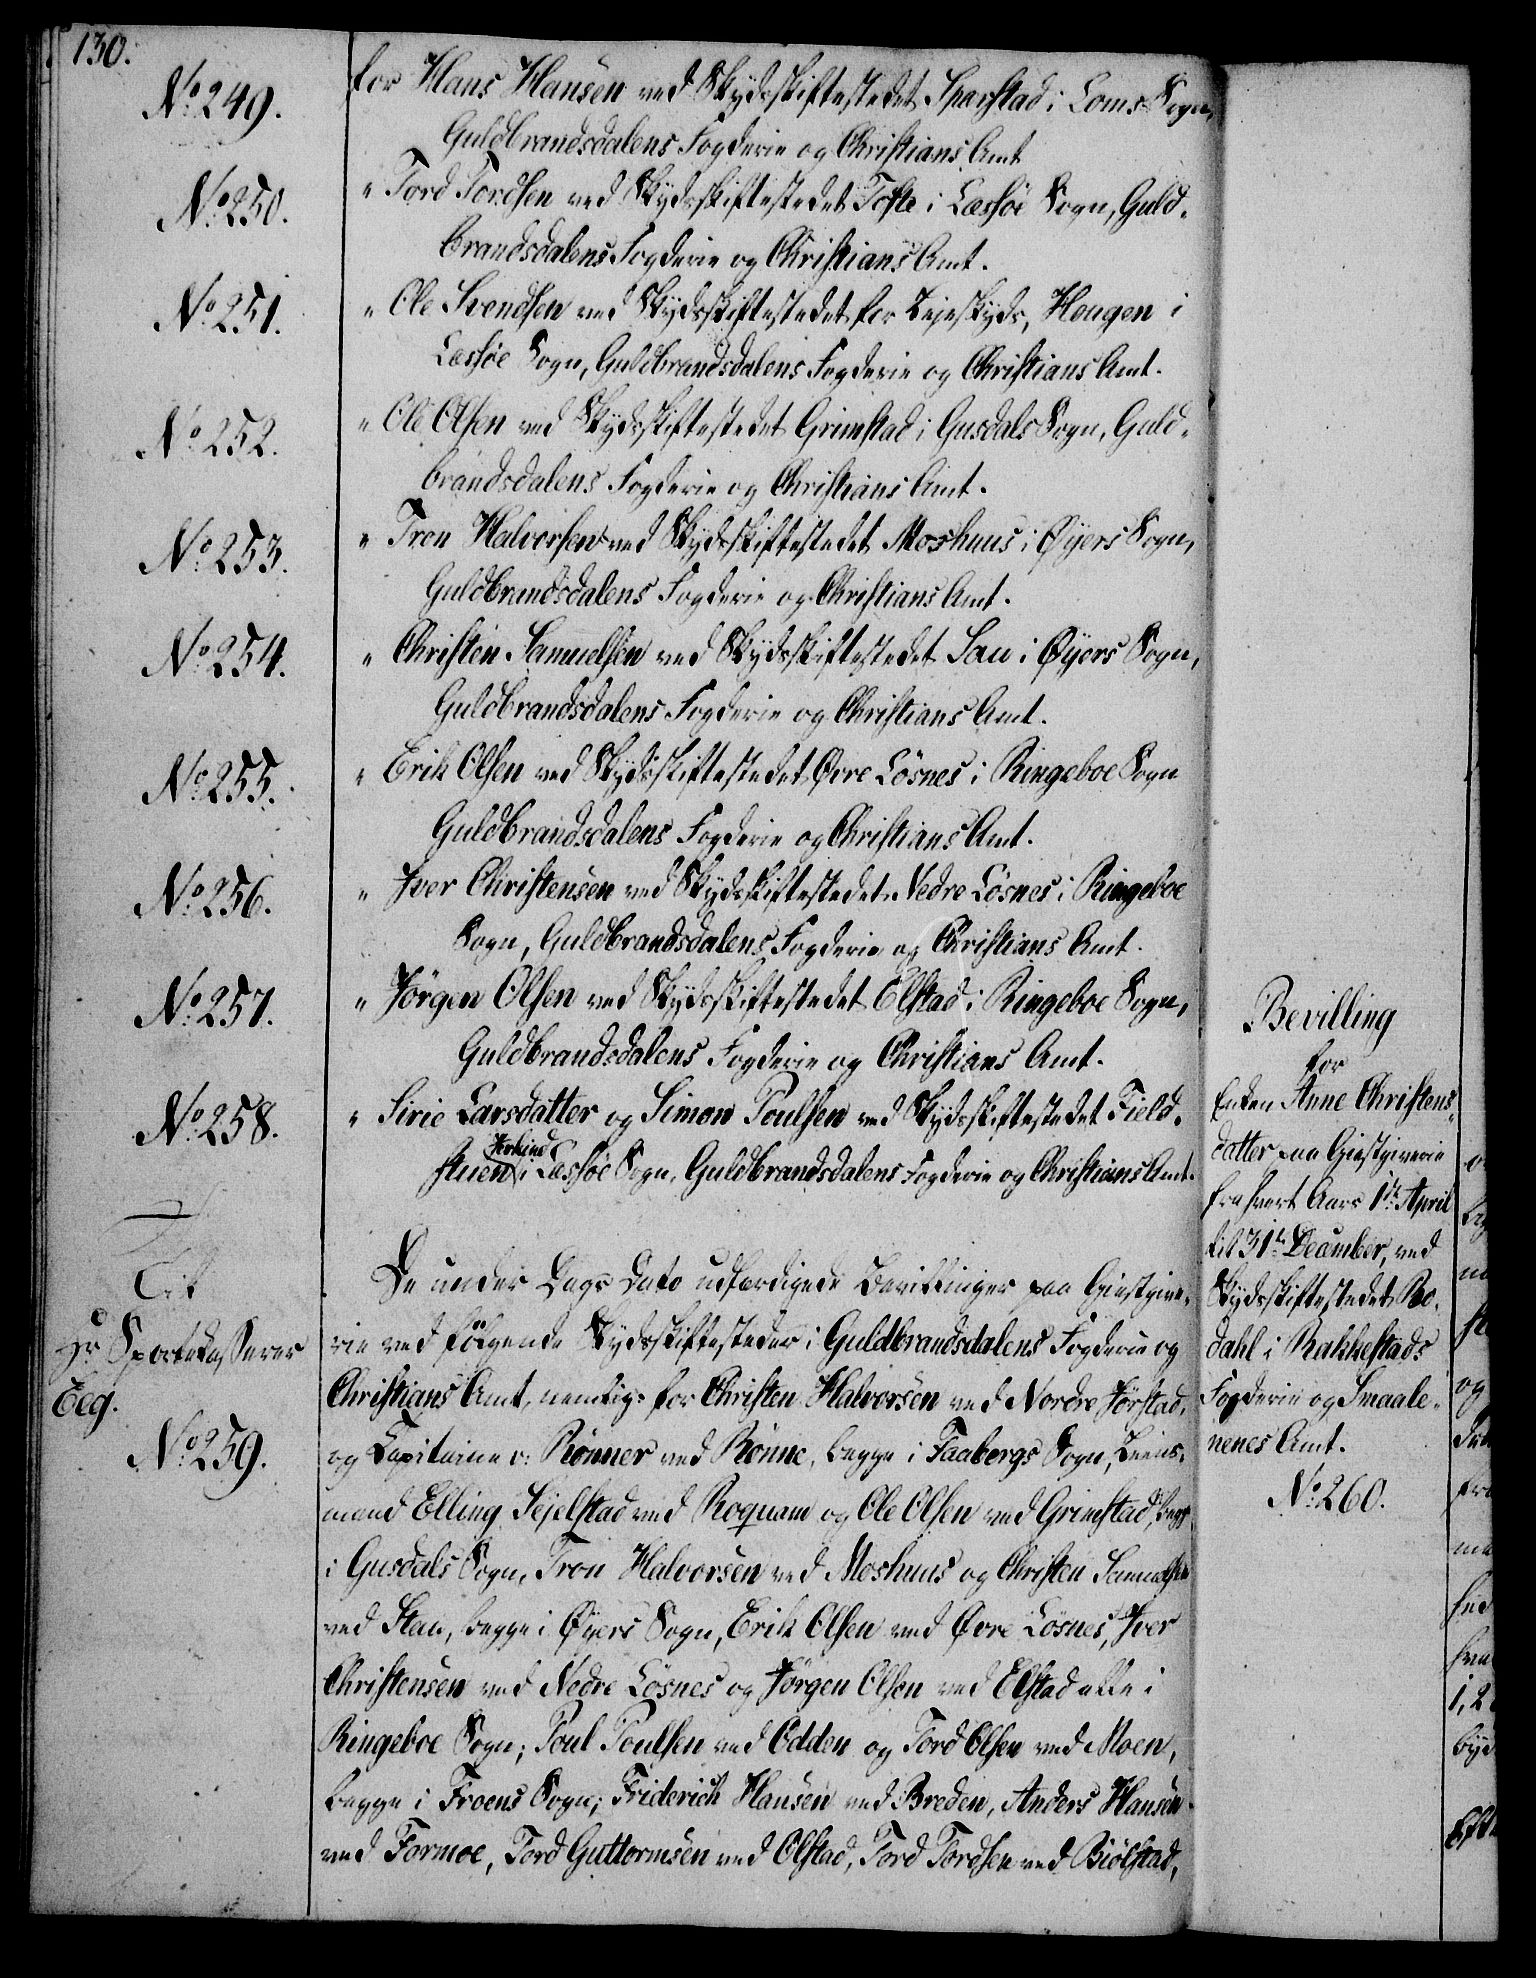 130.
No 249.
for Hans Hansen ved Skydsskiftestedet Sparstad i Loms Sogn,
Guldbrandsdalens Fogderie og Christians Amt
No 250.
" Tord Tordsen ved Skydsskiftestedet Tofte i Lessöe Sogn, Guld-
brandsdalens Fogderie og Christians Amt.
No 251.
" Ole Svendsen ved Skydsskiftestedet for Leieskyds, Hougen i
Lessöe Sogn, Guldbrandsdalens Fogderie og Christians Amt.
No 252.
" Ole Olsen ved Skydsskiftestedet Grimstad i Gusdals Sogn, Guld-
brandsdalens Fogderie og Christians Amt.
No 253.
" Tron Halvorsen ved Skydsskiftestedet Moshuus i Øyers Sogn,
Guldbrandsdalens Fogderie og Christians Amt.
No 254.
" Christen Samuelsen ved Skydsskiftestedet Sau i Øyers Sogn,
Guldbrandsdalens Fogderie og Christians Amt.
No 255.
" Erik Olsen ved Skydsskiftestedet Øvre Lösnes i Ringeboe Sogn
Guldbrandsdalens Fogderie og Christians Amt.
No 256.
" Iver Christensen ved Skydsskiftestedet Nedre Lösnes i Ringeboe
Sogn, Guldbrandsdalens Fogderie og Christians Amt.
No 257.
" Jörgen Olsen ved Skydsskiftestedet Elstad i Ringeboe Sogn,
Guldbrandsdalens Fogderie og Christians Amt.
No 258.
" Sirie Larsdatter og Simon Poulsen ved Skydsskiftestedet Field-
Jerkind
stuen i Lessöe Sogn, Guldbrandsdalens Fogderie og Christians Amt.
Til
Hr Sportelcasserer
Eeg.
No 259.
De under Dags Dato udfærdigede Bevillinger paa Giestgive-
rie ved fölgende Skydsskiftesteder i Guldbrandsdalens Fogderie og
Christians Amt, nemlig: for Christen Halvorsen ved Nordre Jörstad,
og Capitaine v: Rönner ved Rönne, begge i Faabergs Sogn, Leens-
mand Elling Sejelstad ved Roquam og Ole Olsen ved Grimstad, begge
i Gusdals Sogn, Tron Halvorsen ved Moshuus og Christen Samuelsen
ved Stau, begge i Øyers Sogn, Erik Olsen ved Øvre Lösnes, Iver
Christensen ved Nedre Lösnes og Jörgen Olsen ved Elstad alle i
Ringeboe Sogn; Poul Poulsen ved Odden og Tord Olsen ved Moen,
begge i Froens Sogn; Friderich Hansen ved Breden, Anders Hansen
ved Formoe, Tord Guttormsen ved Olstad, Tord Tordsen ved Biölstad,
Bevilling
for
Enken Anne Christens-
datter paa Giestgiverie
fra hvert Aars 1te April
til 31te December, ved
Skydsskiftestedet Ro-
dahl i Rakkestads
Fogderie og Smaale-
nenes Amt.
No 260.